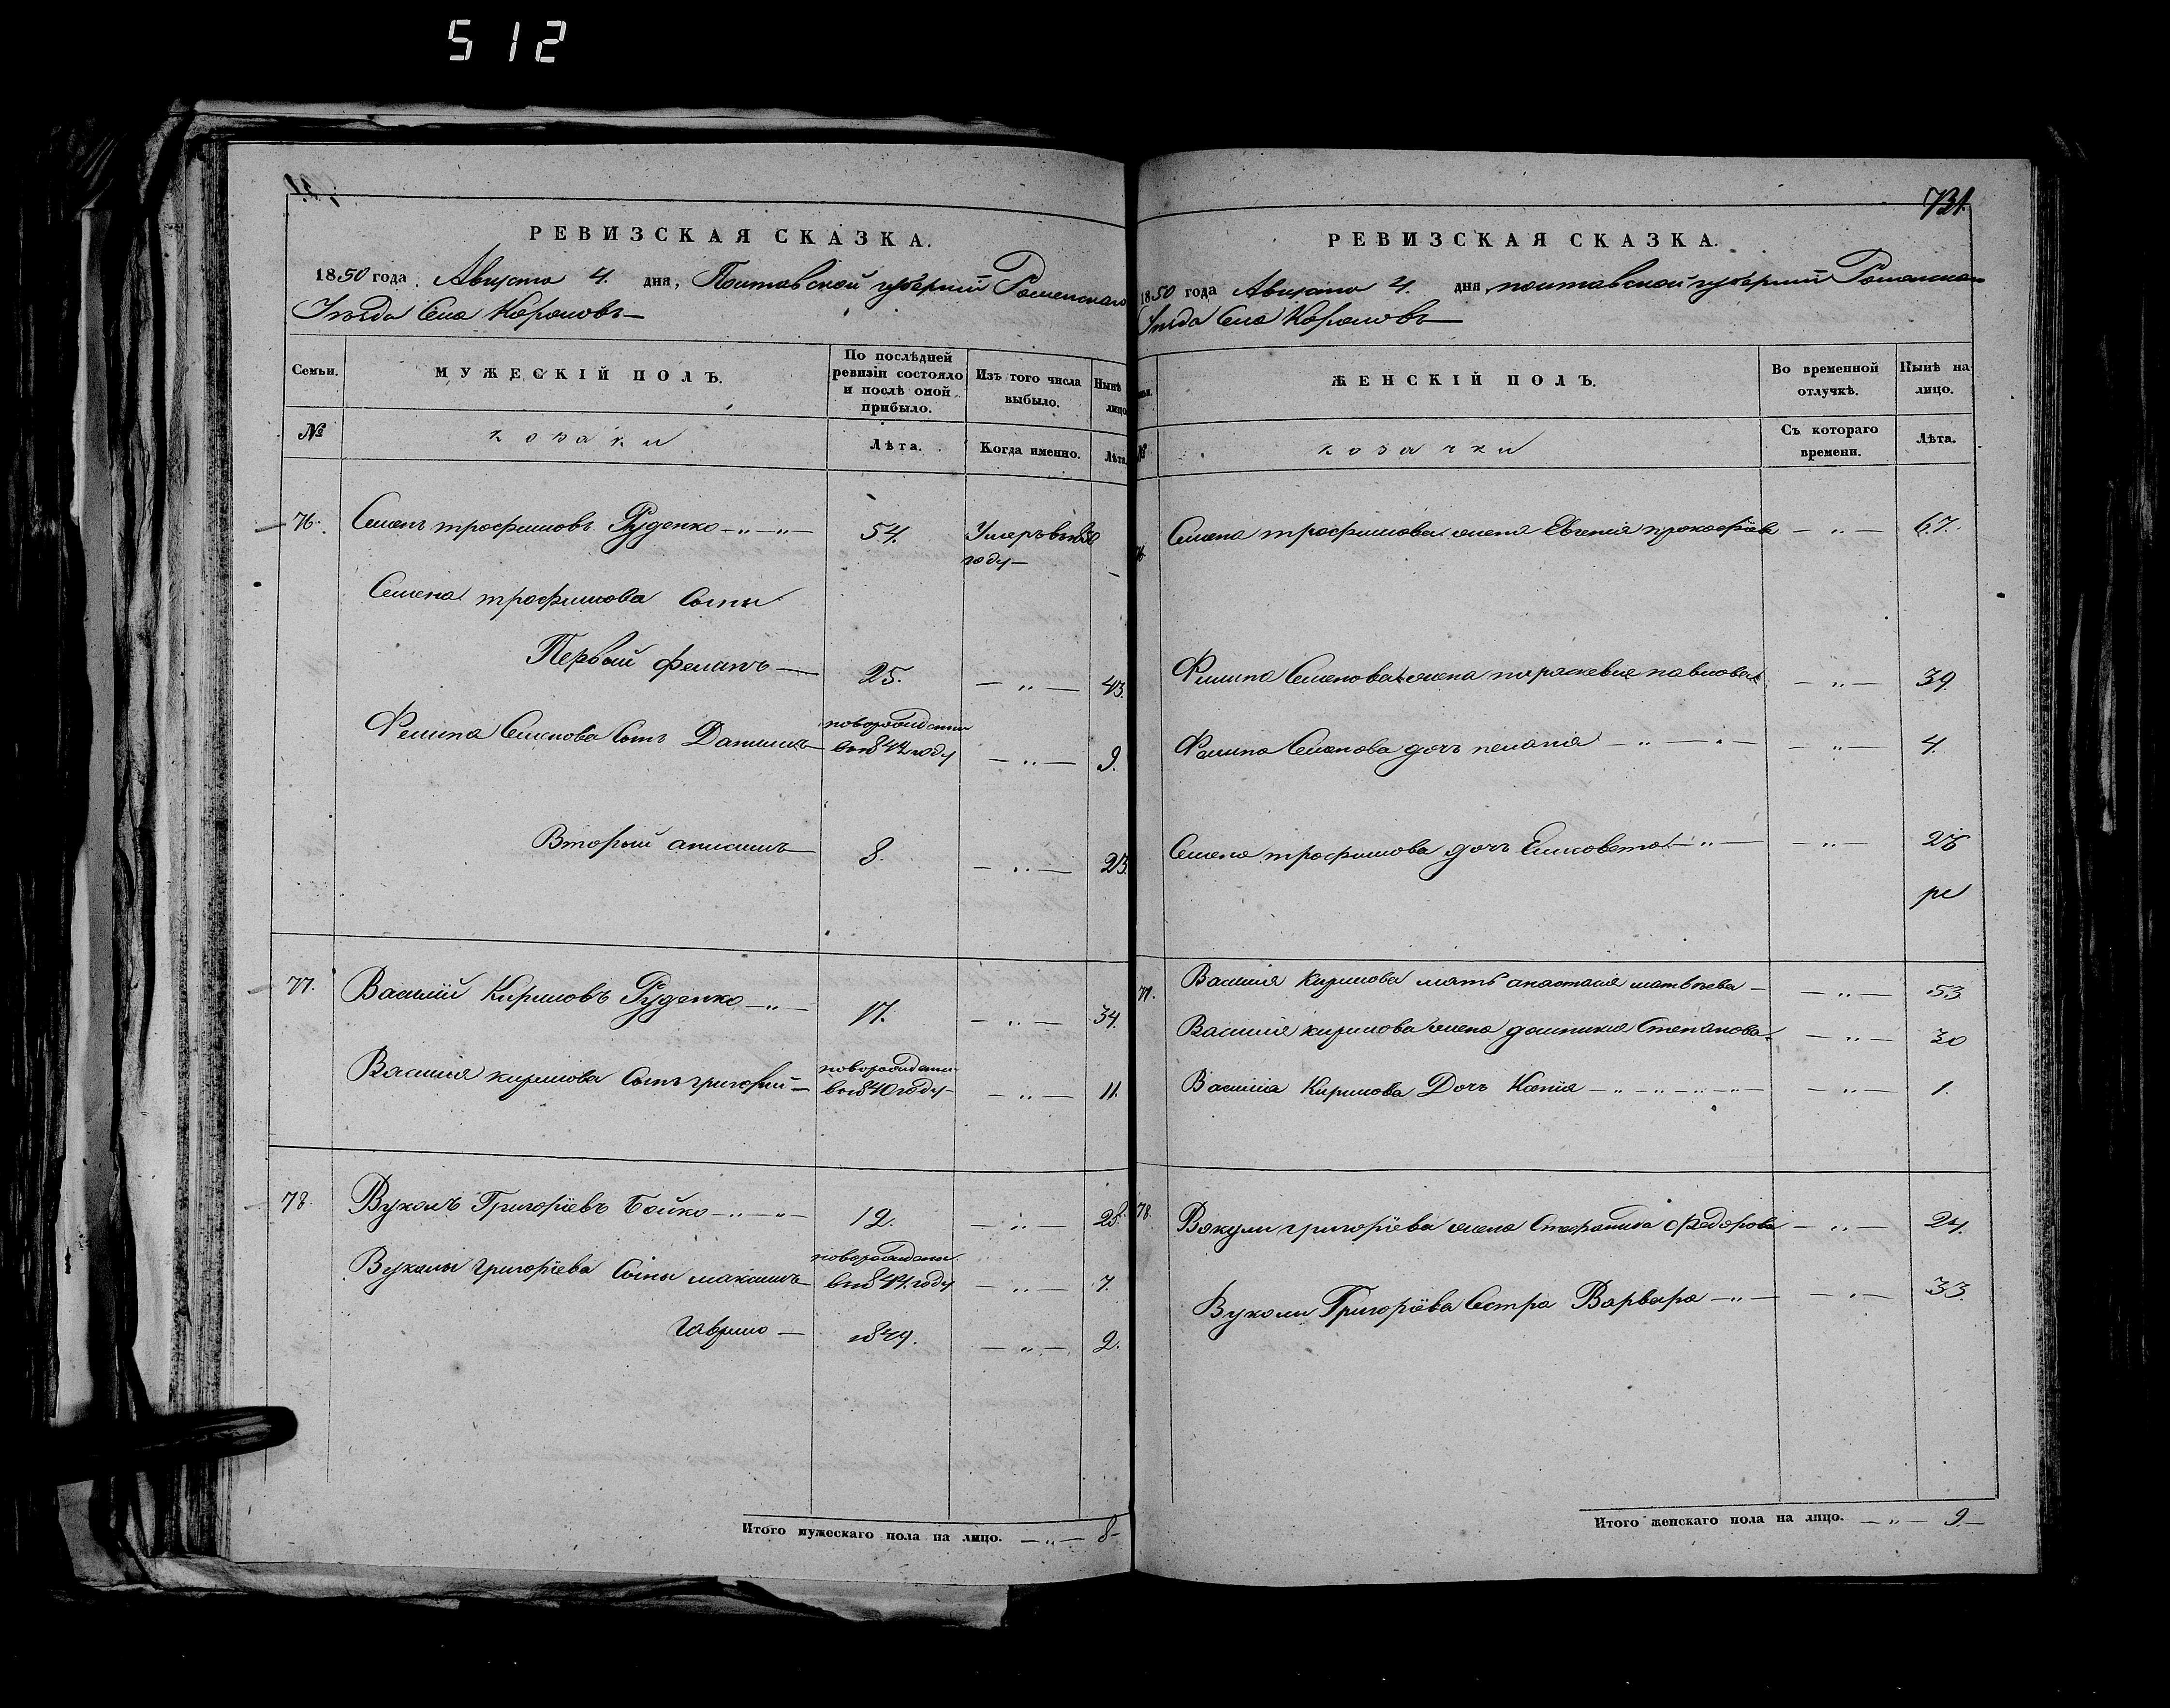 512
РЕВИЗСКАЯ СКАЗКА.
1850 года Августа 4. дня, Полтавской губерніи Роменскаго
Уѣзда Села Коровинъ
Семьи.
МУЖЕСКІЙ ПОЛЪ.
По послѣдней ревизіи состояло и послѣ оной прибыло.
Изъ того числа выбыло.
Нынѣ лицо
№
козаки
Лѣта.
Когда именно.
Лѣта
76. Семенъ трофимовъ Руденко 54. Умеръ в 1850 году
Семена трофимова Сыны
Первый филипъ 25. 43.
Филипа Семенова Сынъ Данилъ новорожденъ в 1842 году 9.
Вторый анисимъ 8. 25.
77. Василій Кириловъ Руденко 17. 34.
Василія кирилова Сынъ григорій новорожденъ в 1840 году 11.
78. Вуколъ Григоріевъ Бойко 12. 28.
Вуколы григоріева Сыны максимъ новорожденъ в 1844 году 7.
гаврило 1849. 2.
Итого мужескаго пола на лицо. 8
731.
РЕВИЗСКАЯ СКАЗКА.
1850 года Августа 4. дня, полтавской губерніи Роменскаго
Уѣзда Села Коровинъ
ЖЕНСКІЙ ПОЛЪ.
Во временной отлучкѣ.
Нынѣ на лицо.
№
козачки
Съ котораго времени.
Лѣта.
76. Семена трофимова жена Евгенія прокофіева 67.
Филипа Семенова жена параскевія павлова 39.
Филипа Семенова дочь пелагія 4.
Семена трофимова дочь Елисовета 26
77. Василія Кирилова мать анастасія матвѣева 53
Василія кирилова жена домникія Степанова 30
Василія Кирилова Дочь Ксенія 1.
78. Вокулы григоріева жена Стефанида Федорова 24.
Вуколы Григоріева Сестра Варвара 33.
Итого женскаго пола на лицо. 9.